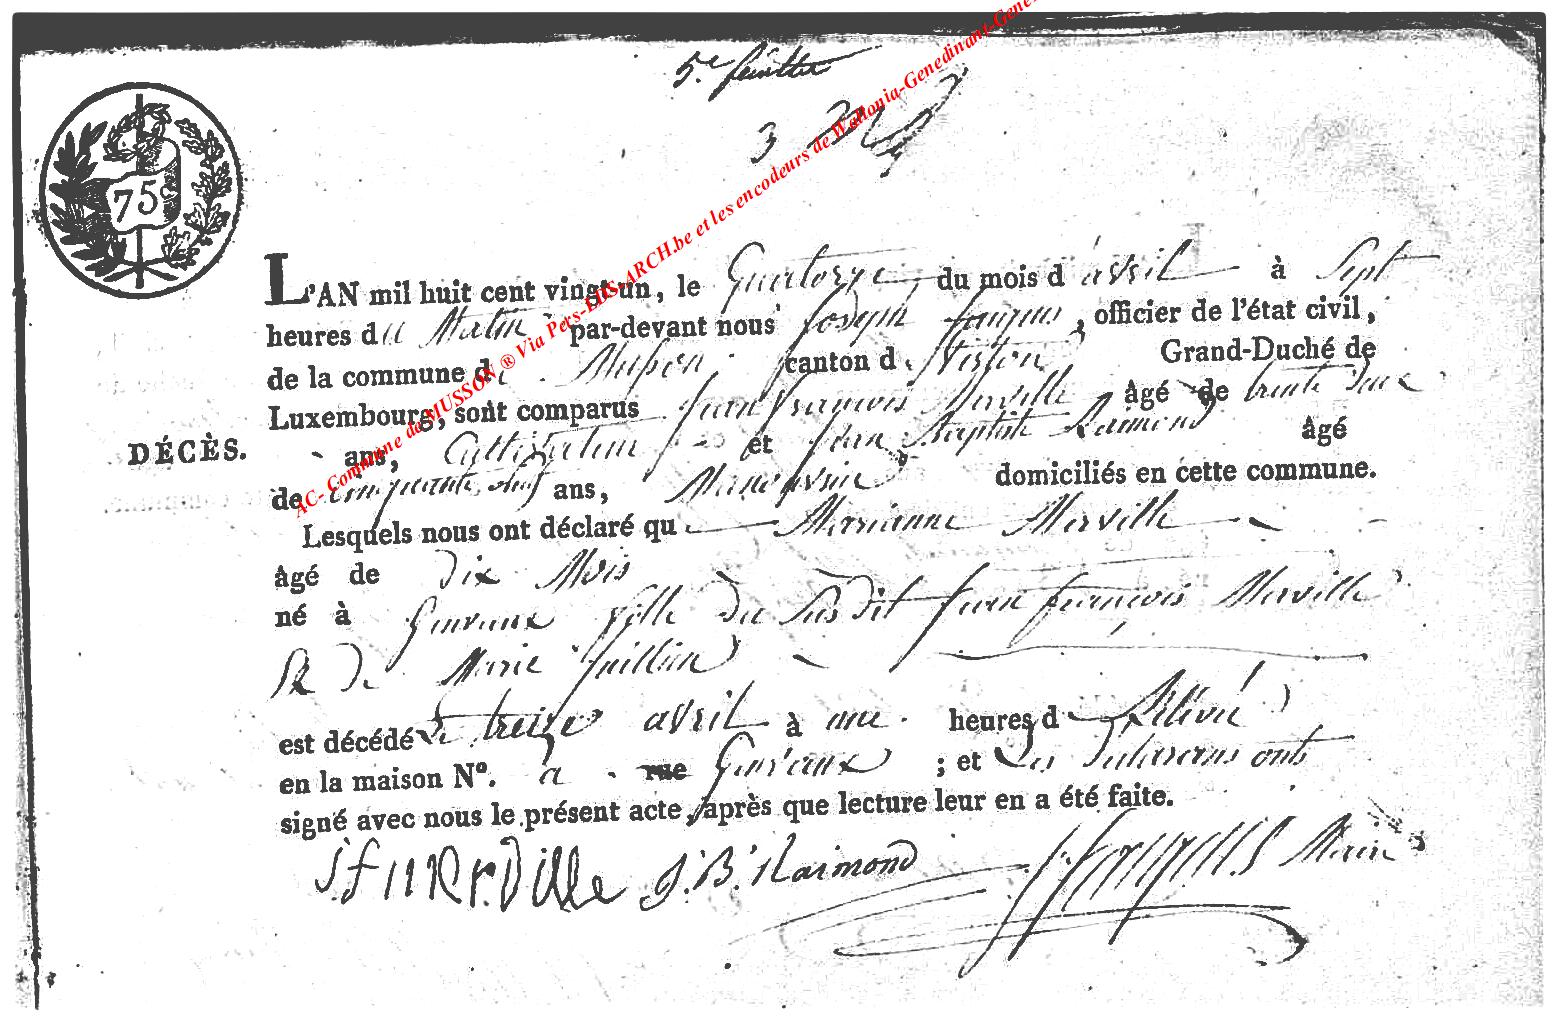 5.e feuillet
3
75
L'AN mil huit cent vingt-un, le Quatorze du mois d'avril à Sept
heures du Matin par-devant nous Joseph , officier de l'état civil,
de la commune de Musson canton de Virton Grand-Duché de
Luxembourg, sont comparus Jean François Merville âgé de trente deux
ans, Cultivateur et Jean Baptiste Raimond âgé
DÉCÈS.
de cinquante ans, Manouvrier domiciliés en cette commune.
Lesquels nous ont déclaré que Marianne Merville
âgé de dix Mois
né à Genvaux fille du Susdit Jean françois Merville
& de Marie Juillien
est décédé le treize avril à une heures de Relevé
en la maison N°. a rue Genvaux ; et Les declarans onts
signé avec nous le présent acte, après que lecture leur en a été faite.
J. f Merville J. B. Raimond Maire
AC- Commune de MUSSON ® Via Pers-EHS-ARCH.be et les encodeurs de Wallonia-Genedinant-Gene